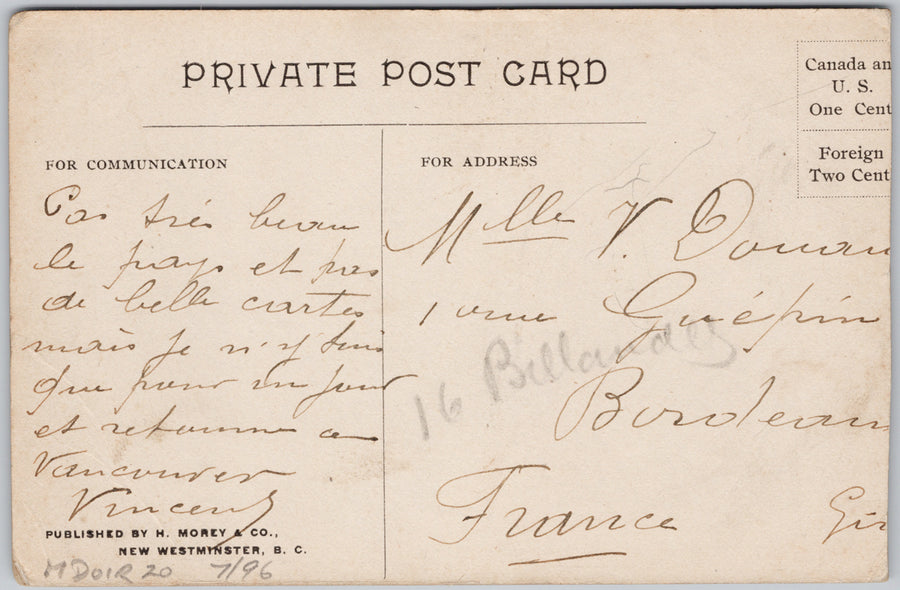 PRIVATE POST CARD
Canada an
U. S.
One Cent
Foreign
Two Cent
FOR COMMUNICATION
Pas très beau
le pays et pas
de belle cartes
mais je n'y suis
que pour un jour
et retourne a
Vancouver
Vincent
PUBLISHED BY H. MOREY & CO.,
NEW WESTMINSTER, B. C.
FOR ADDRESS
Mlle V. Douau
1 rue Guépin
16
Bordeau
France Gir
7/96